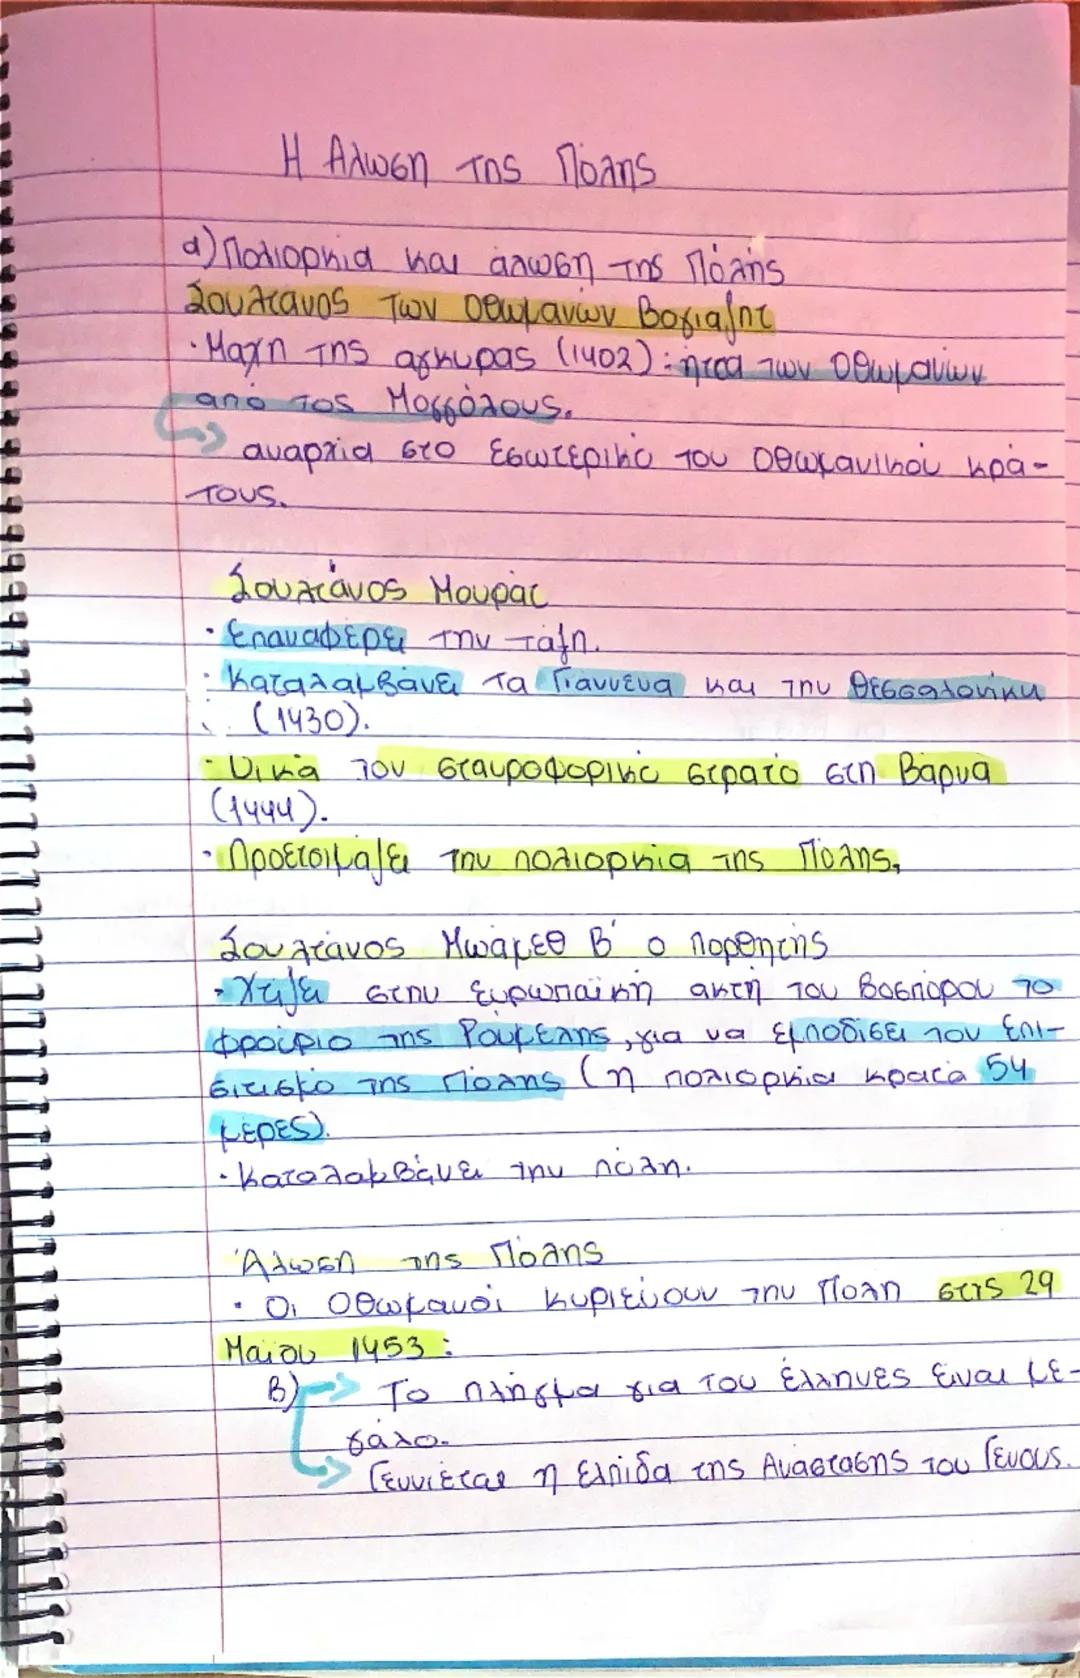 Η Αλωση της Πολης
α) Πολιορκια και άλωση της Πόλης
Σουλτανος των Οθωμανων Βαγιαζητ
· Μαχη της αγκυρας (1402): ήττα των Οθωμανων
από τος Μογγόλους.
αναρχια στο εσωτερικό του Οθωμανικού κρά-
τους.
Σουλτάνος Μουράτ
· Επαναφέρει την ταξη.
· Καταλαμβάνει τα Γιαννενα και την Θεσσαλονίκη
(1430).
· Νικά τον σταυροφορικό στρατό στη Βάρνα
(1444).
· Προετοιμαζει την πολιορκια της Πολης.
Σουλτάνος Μωάμεθ Β' ο πορθητής
· Χτιζει στην ευρωπαϊκή ακτή του Βοσπόρου το
φρούριο της Ρουμελης, για να εμποδισει τον επι-
σιτισμό της Πόλης (η πολιορκια κρατά 54
μερες).
· Καταλαμβάνει την πόλη.
Άλωση της Πόλης
· Οι Οθωμανοί κυριεύουν την Πολη στις 29
Μαϊου 1453:
Β) Το πλήγμα για του έλληνες ειναι με-
γάλο.
Γεννιέται η ελπιδα της Αναστασης του Γενους.